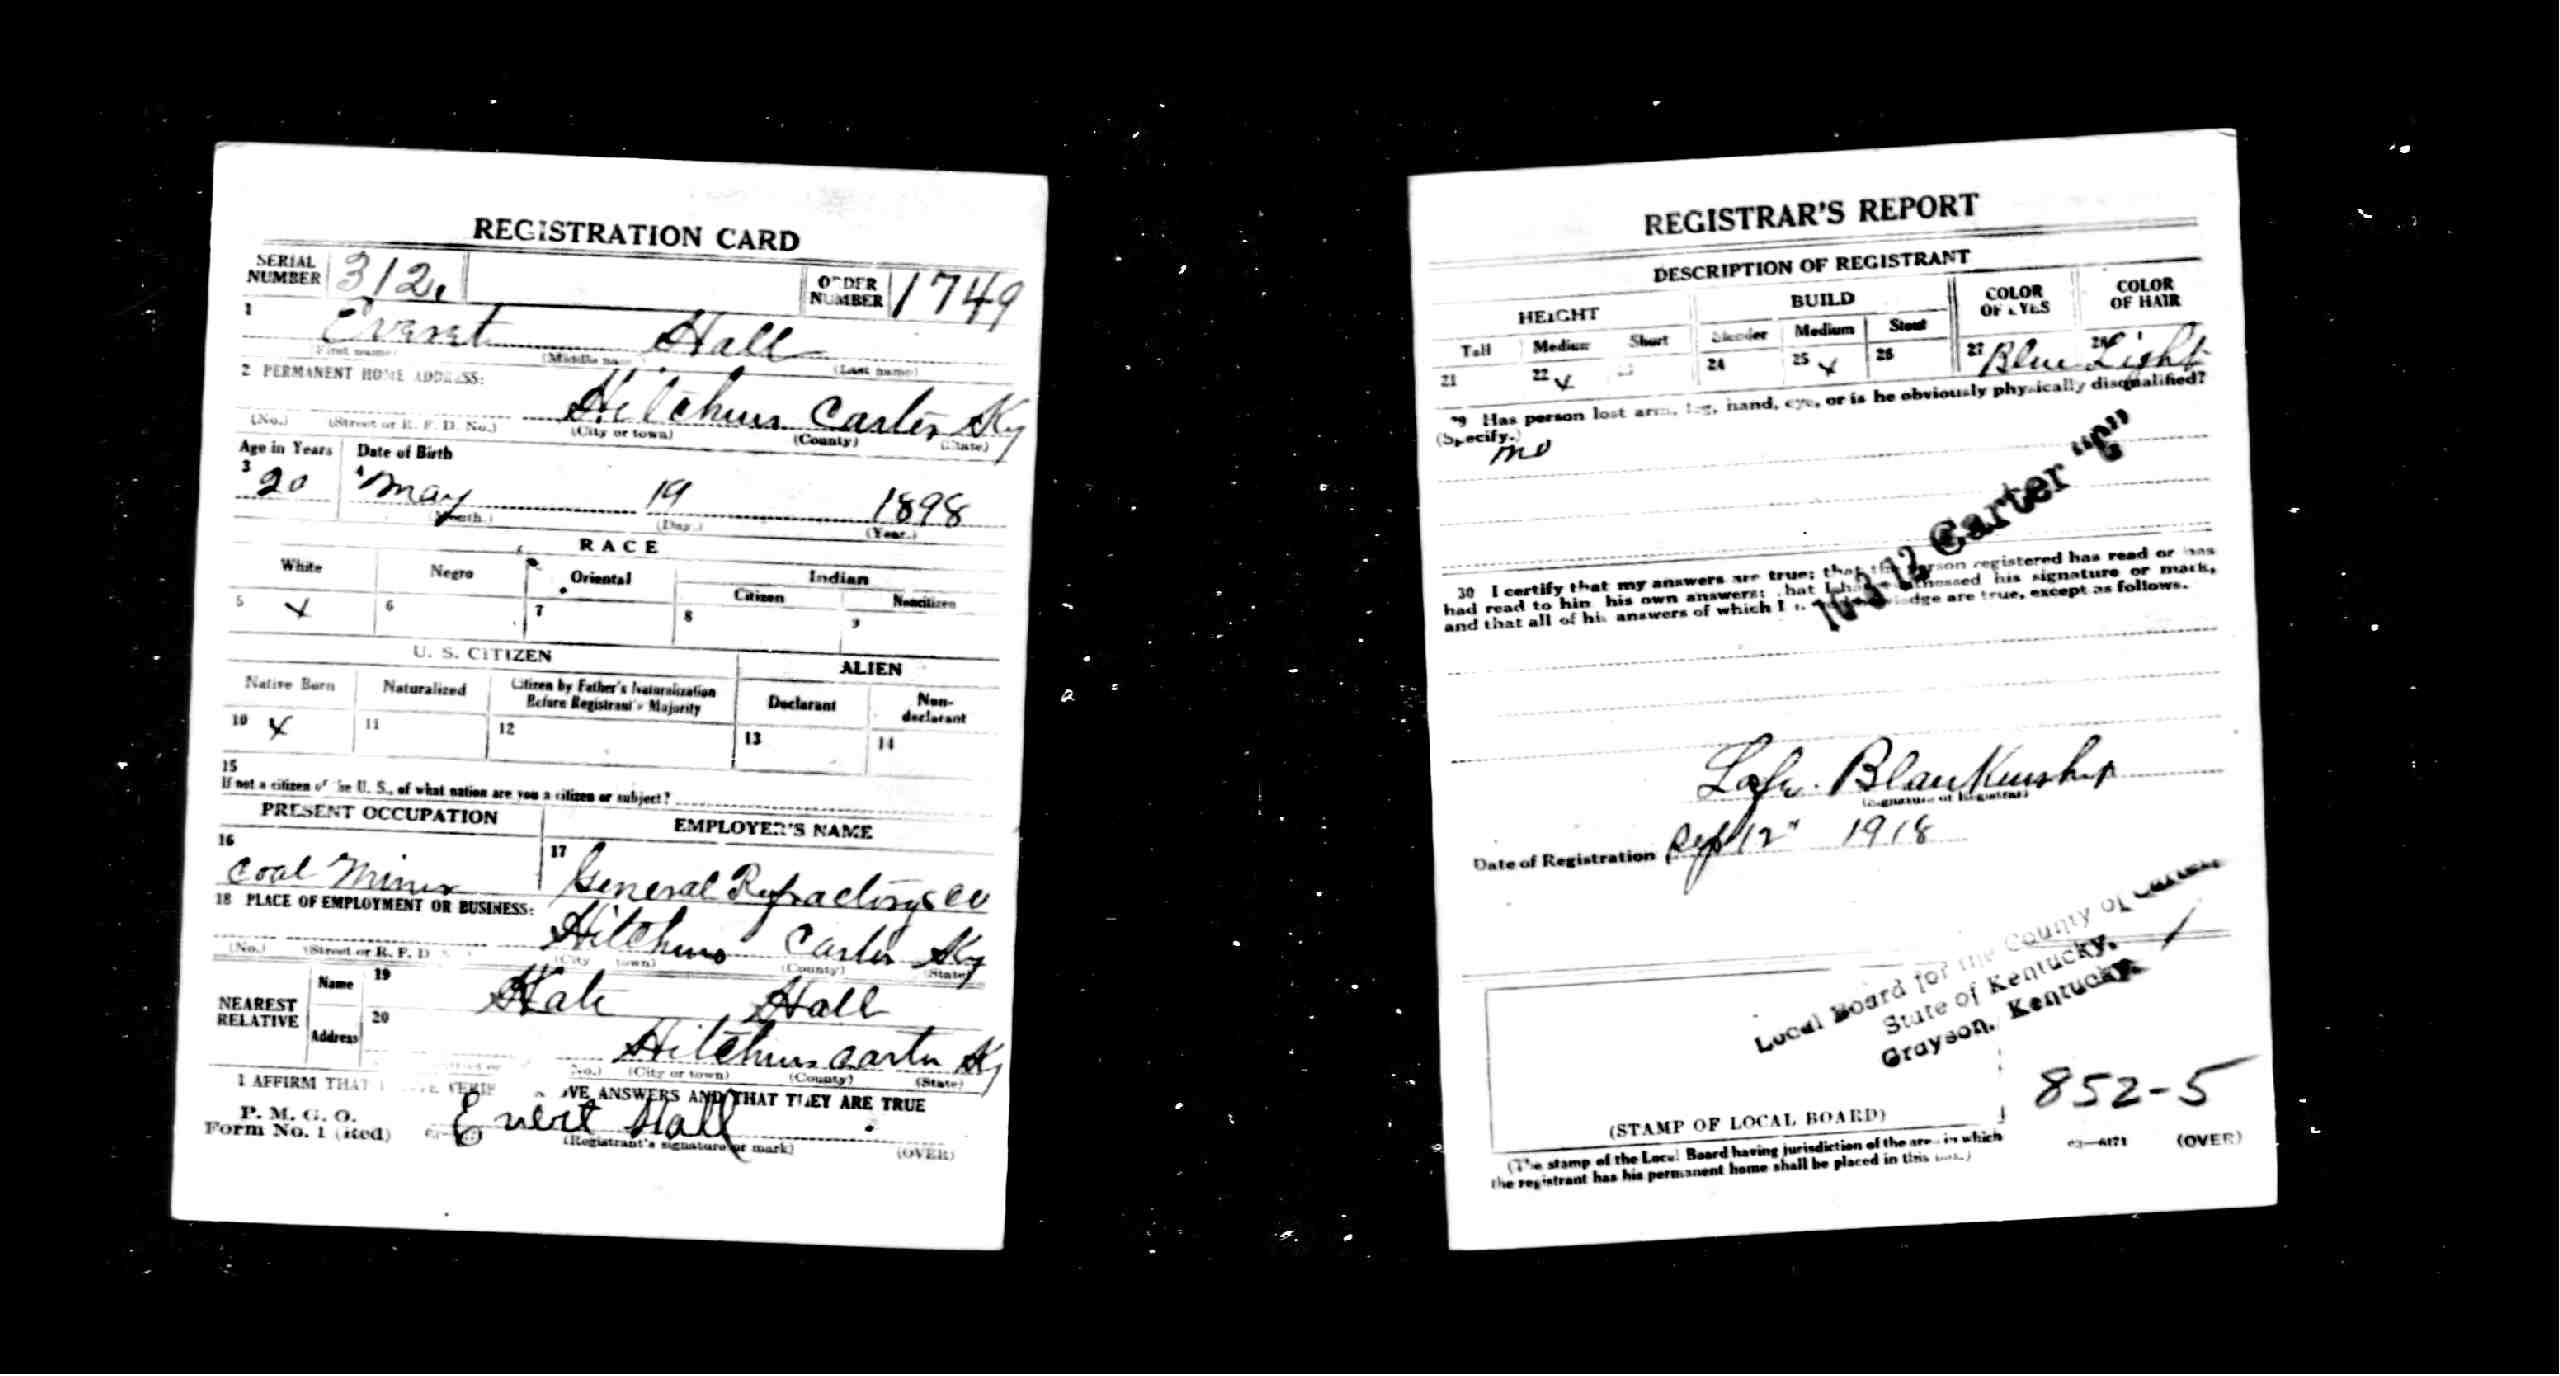 REGISTRATION CARD
SERIAL NUMBER 312. ORDER NUMBER 1749
1 Everet Hall
(First name) (Middle name) (Last name)
2 PERMANENT HOME ADDRESS:
Hitchins Carter Ky
(No.) (Street or R. F. D. No.) (City or town) (County) (State)
Age in Years Date of Birth
3 20 4 May 19 1898
(Month.) (Day.) (Year.)
RACE
White Negro Oriental Indian
Citizen Noncitizen
5 X 6 7 8 9
U. S. CITIZEN ALIEN
Native Born Naturalized Citizen by Father's Naturalization Before Registrant's Majority Declarant Non-declarant
10 X 11 12 13 14
15
If not a citizen of the U. S., of what nation are you a citizen or subject?
PRESENT OCCUPATION EMPLOYER'S NAME
16 Coal Miner 17 General Refractorys Co
18 PLACE OF EMPLOYMENT OR BUSINESS:
Hitchins Carter Ky
(No.) (Street or R. F. D. (City town) (County) (State)
NEAREST RELATIVE Name 19 Kate Hall
Address 20 Hitchins Carter Ky
No.) (City or town) (County) (State)
I AFFIRM THAT I VERIF OVE ANSWERS AND THAT THEY ARE TRUE
P. M. G. O.
Form No. 1 (Red) Evert Hall
(Registrant's signature or mark) (OVER)
REGISTRAR'S REPORT
DESCRIPTION OF REGISTRANT
HEIGHT BUILD COLOR OF EYES COLOR OF HAIR
Tall Medium Short Slender Medium Stout
21 22 X 23 24 25 X 26 27 Blue 28 Light
29 Has person lost arm, leg, hand, eye, or is he obviously physically disqualified?
(Specify.) no
16-3-12 Carter "C"
30 I certify that my answers are true; that the person registered has read or has
had read to him his own answers; that I have witnessed his signature or mark,
and that all of his answers of which I have knowledge are true, except as follows.
Lafe Blankenship
(Signature of Registrar)
Date of Registration Sept 12" 1918
Local Board for the County of Carter
State of Kentucky.
Grayson, Kentucky.
852-5
(STAMP OF LOCAL BOARD)
(The stamp of the Local Board having jurisdiction of the area in which
the registrant has his permanent home shall be placed in this box.)
03—6171 (OVER)